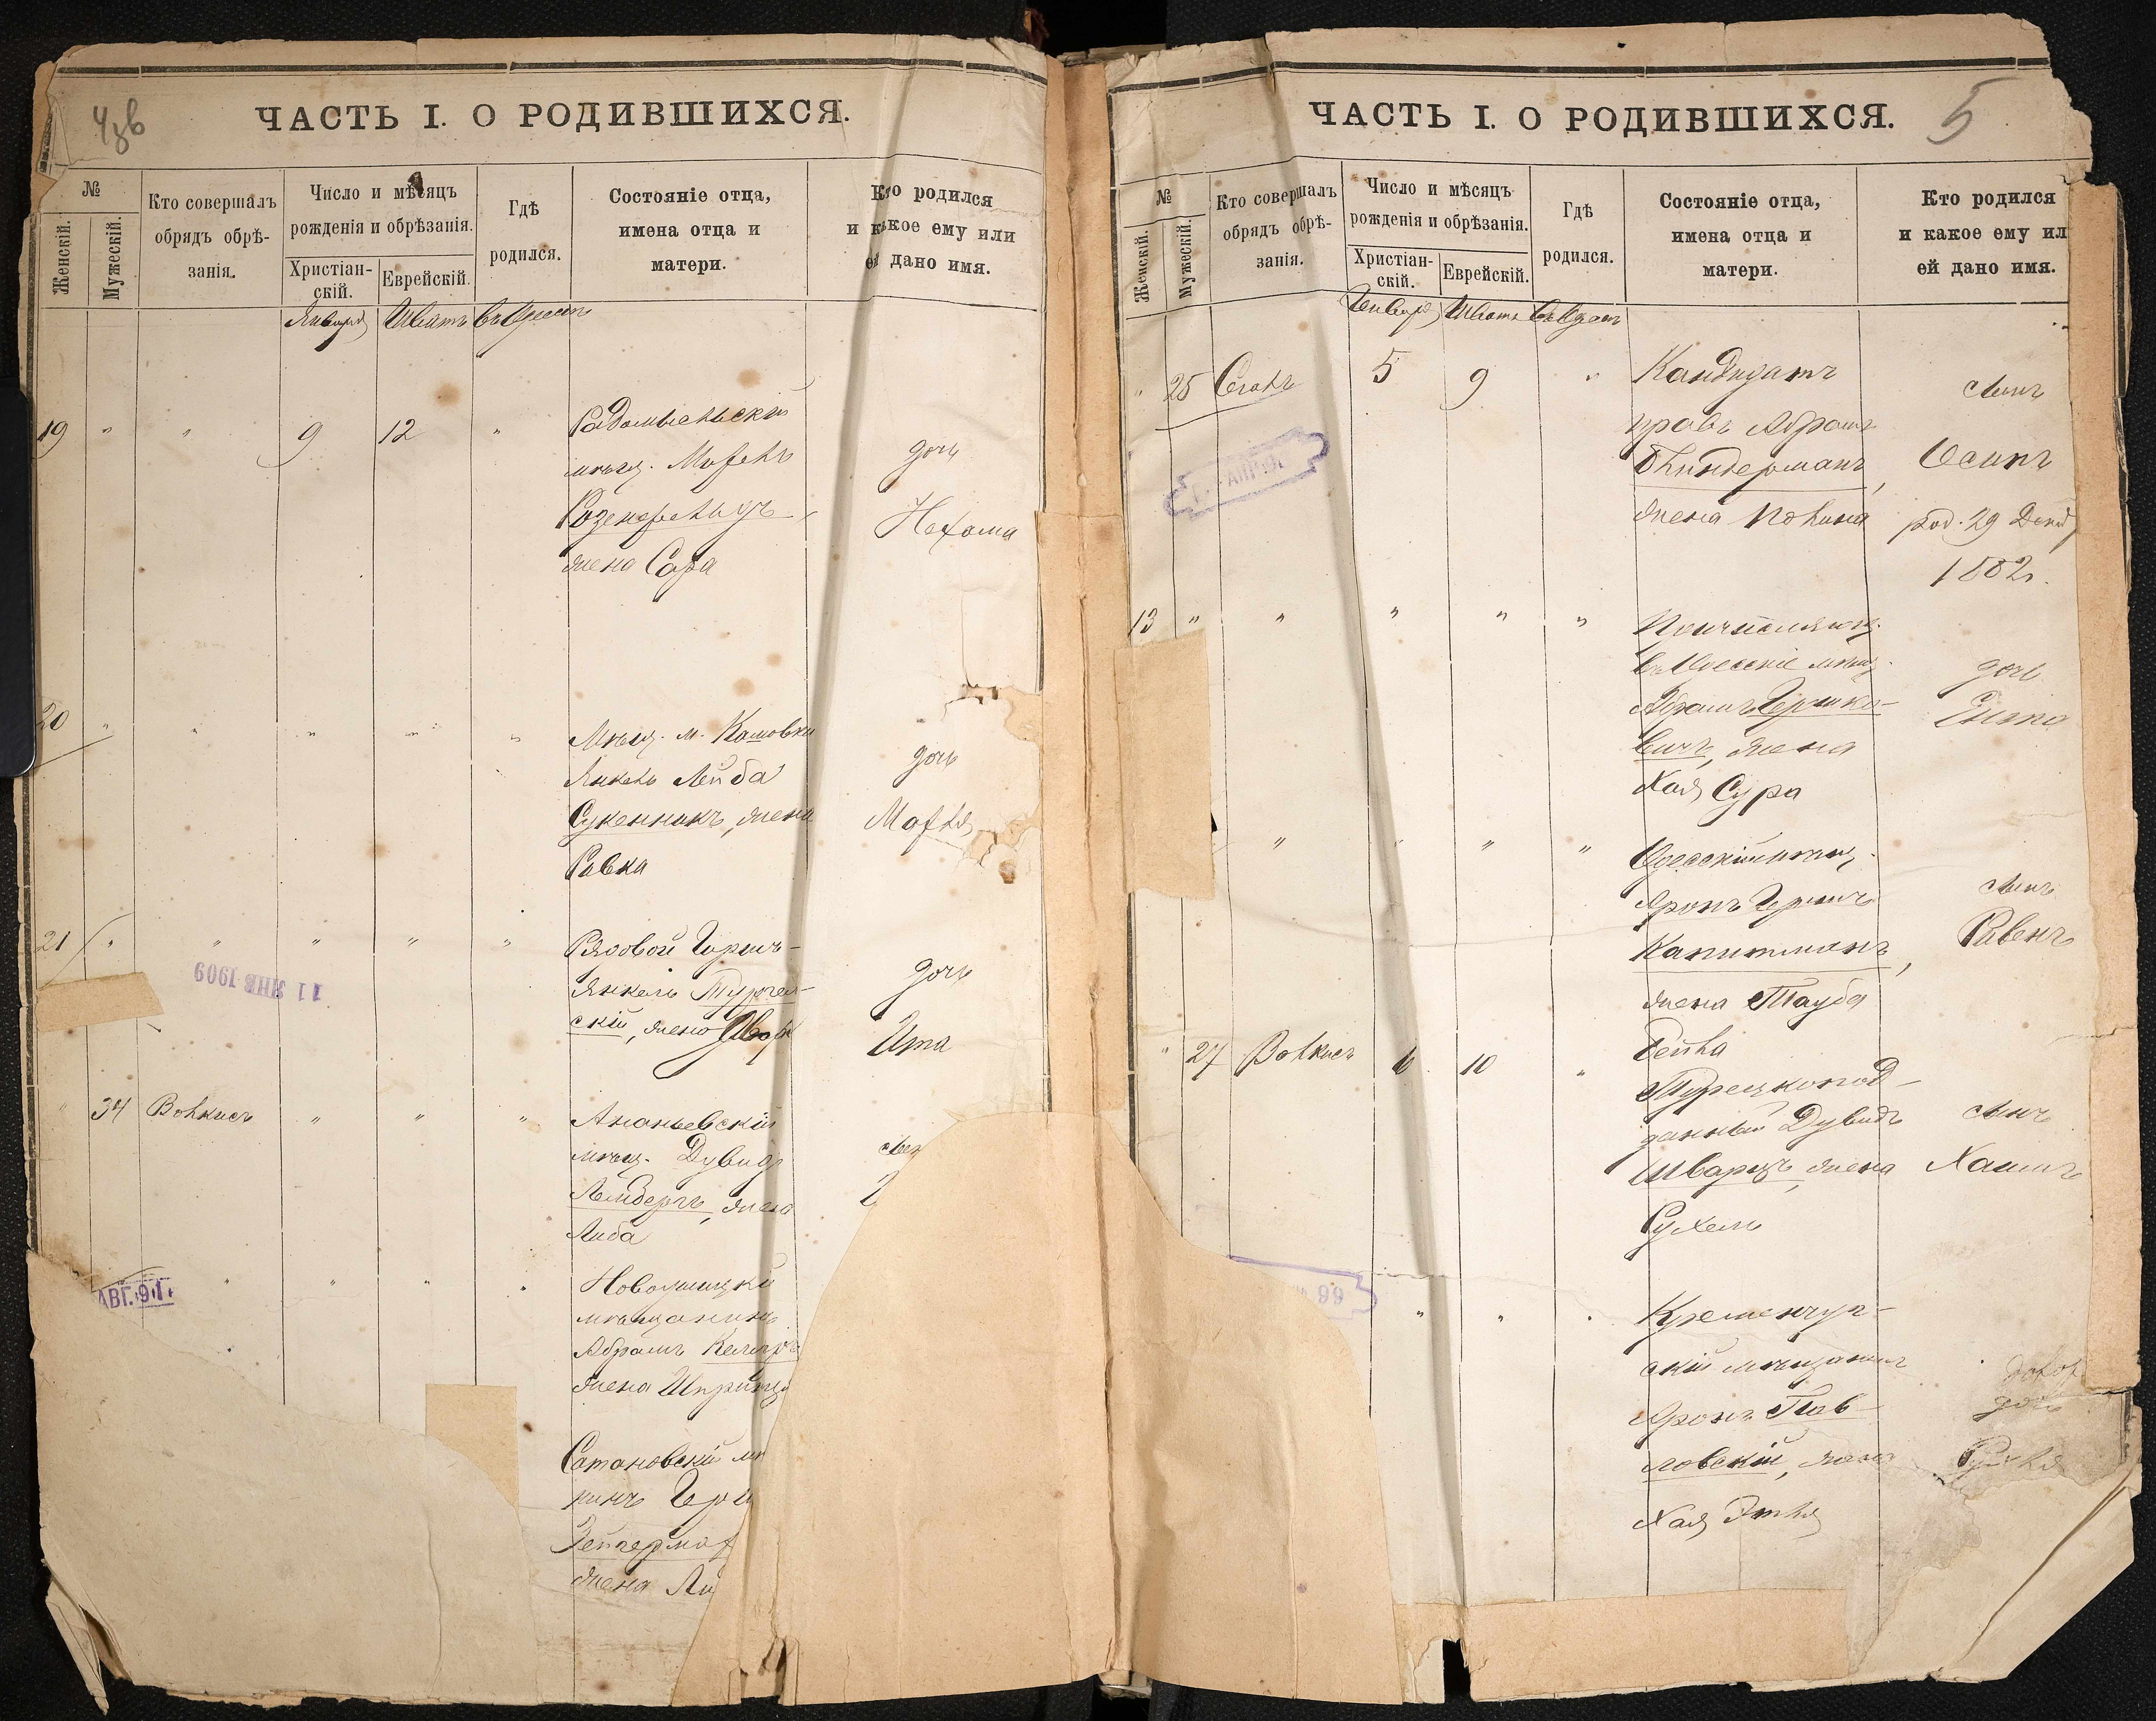 ЧАСТЬ I. О РОДИВШИХСЯ.
№
Женскій.
Мужескій.
Кто совершалъ
обрядъ обрѣ-
занія.
Число и мѣсяцъ
рожденія и обрѣзанія.
Христіан-
скій.
Еврейскій.
Гдѣ
родился.
Состояніе отца,
имена отца и
матери.
Кто родился
и какое ему или
ей дано имя.
Января Шватъ въ Одессѣ
19 " " 9 12 "
Радомысльскій
мѣщ.
Розенфельдъ,
жена Сара
дочь
Нехама
20 " " " " "
Мѣщ. м.
Янкель Лейба
Сукенникъ, жена
Ривка
дочь
Малка
21 " " " " "
Рядовой Гершъ-
Янкель
скій, жена
дочь
Ита
11 ЯНВ 1909
" 34 Волкисъ " " "
Ананьевскій
мѣщ. Дувидъ
жена
Либа
АВГ. 91
" " " "
Новоушицкій
мѣщанинъ
Абрамъ
жена Шпринца
Сатановскій мѣ
нинъ Герш
жена Ли
ЧАСТЬ I. О РОДИВШИХСЯ.
5
№
Женскій.
Мужескій.
Кто совершалъ
обрядъ обрѣ-
занія.
Число и мѣсяцъ
рожденія и обрѣзанія.
Христіан-
скій.
Еврейскій.
Гдѣ
родился.
Состояніе отца,
имена отца и
матери.
Кто родился
и какое ему ил
ей дано имя.
Января Шватъ въ Одессѣ
" 25 5 9 "
Кандидатъ
правъ Абрамъ
жена Полина
сынъ
Осипъ
род. 29 Декаб
1882.
13 " " " " "
въ Одессѣ мѣщ.
Абрамъ Гершко-
вичъ, жена
Хая Сура
дочь
" " " "
Одесскій мѣщ.
Аронъ Гершъ
Капитманъ,
жена Тауба
Бейла
сынъ
Рувенъ
" 27 Волкисъ 6 10 "
Турецкопод-
данный Дувидъ
Шварцъ, жена
Рухель
сынъ
Хаимъ
" " "
Кременчуг-
скій мѣщанинъ
Аронъ Пав-
ловскій, жена
Хая Этля
дочь